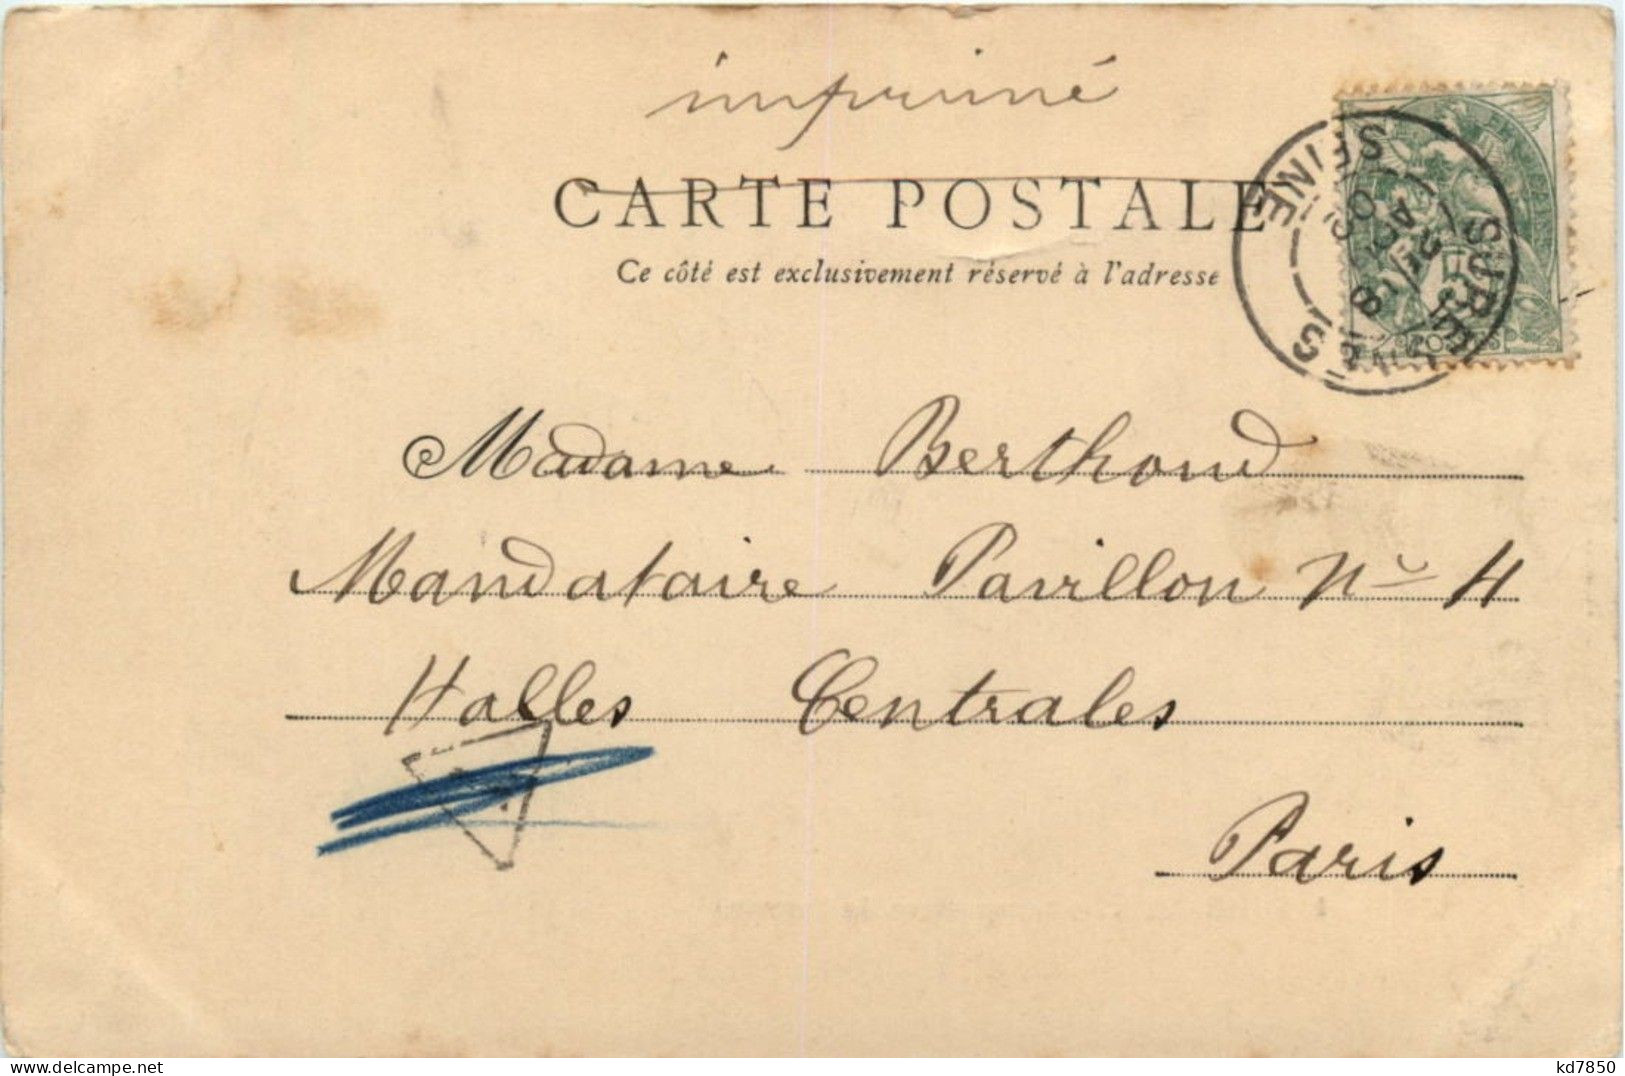 imprimé
CARTE POSTALE
Ce côté est exclusivement réservé à l'adresse
SURESNES
SEINE
Madame Berthoud
Mandataire Pavillon No 4
Halles Centrales
Paris
kd7850